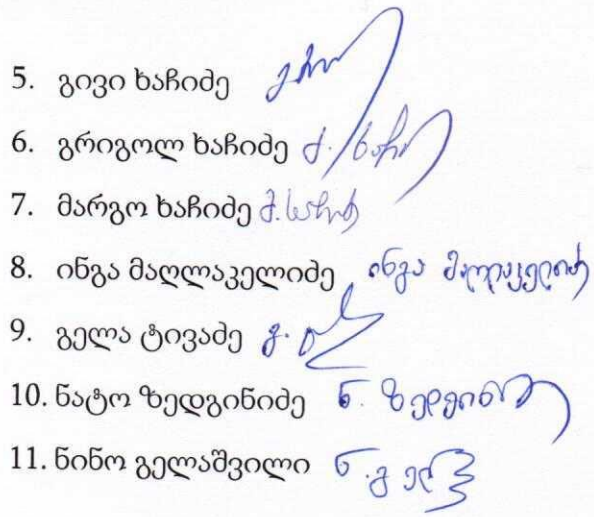 5. გივი ხაჩიძე
6. გრიგოლ ხაჩიძე
7. მარგო ხაჩიძე
8. ინგა მაღლაკელიძე ინგა მაღლაკელიძე
9. გელა ტივაძე
10. ნატო ზედგინიძე ნ. ზედგინიძე
11. ნინო გელაშვილი ნ. გელ